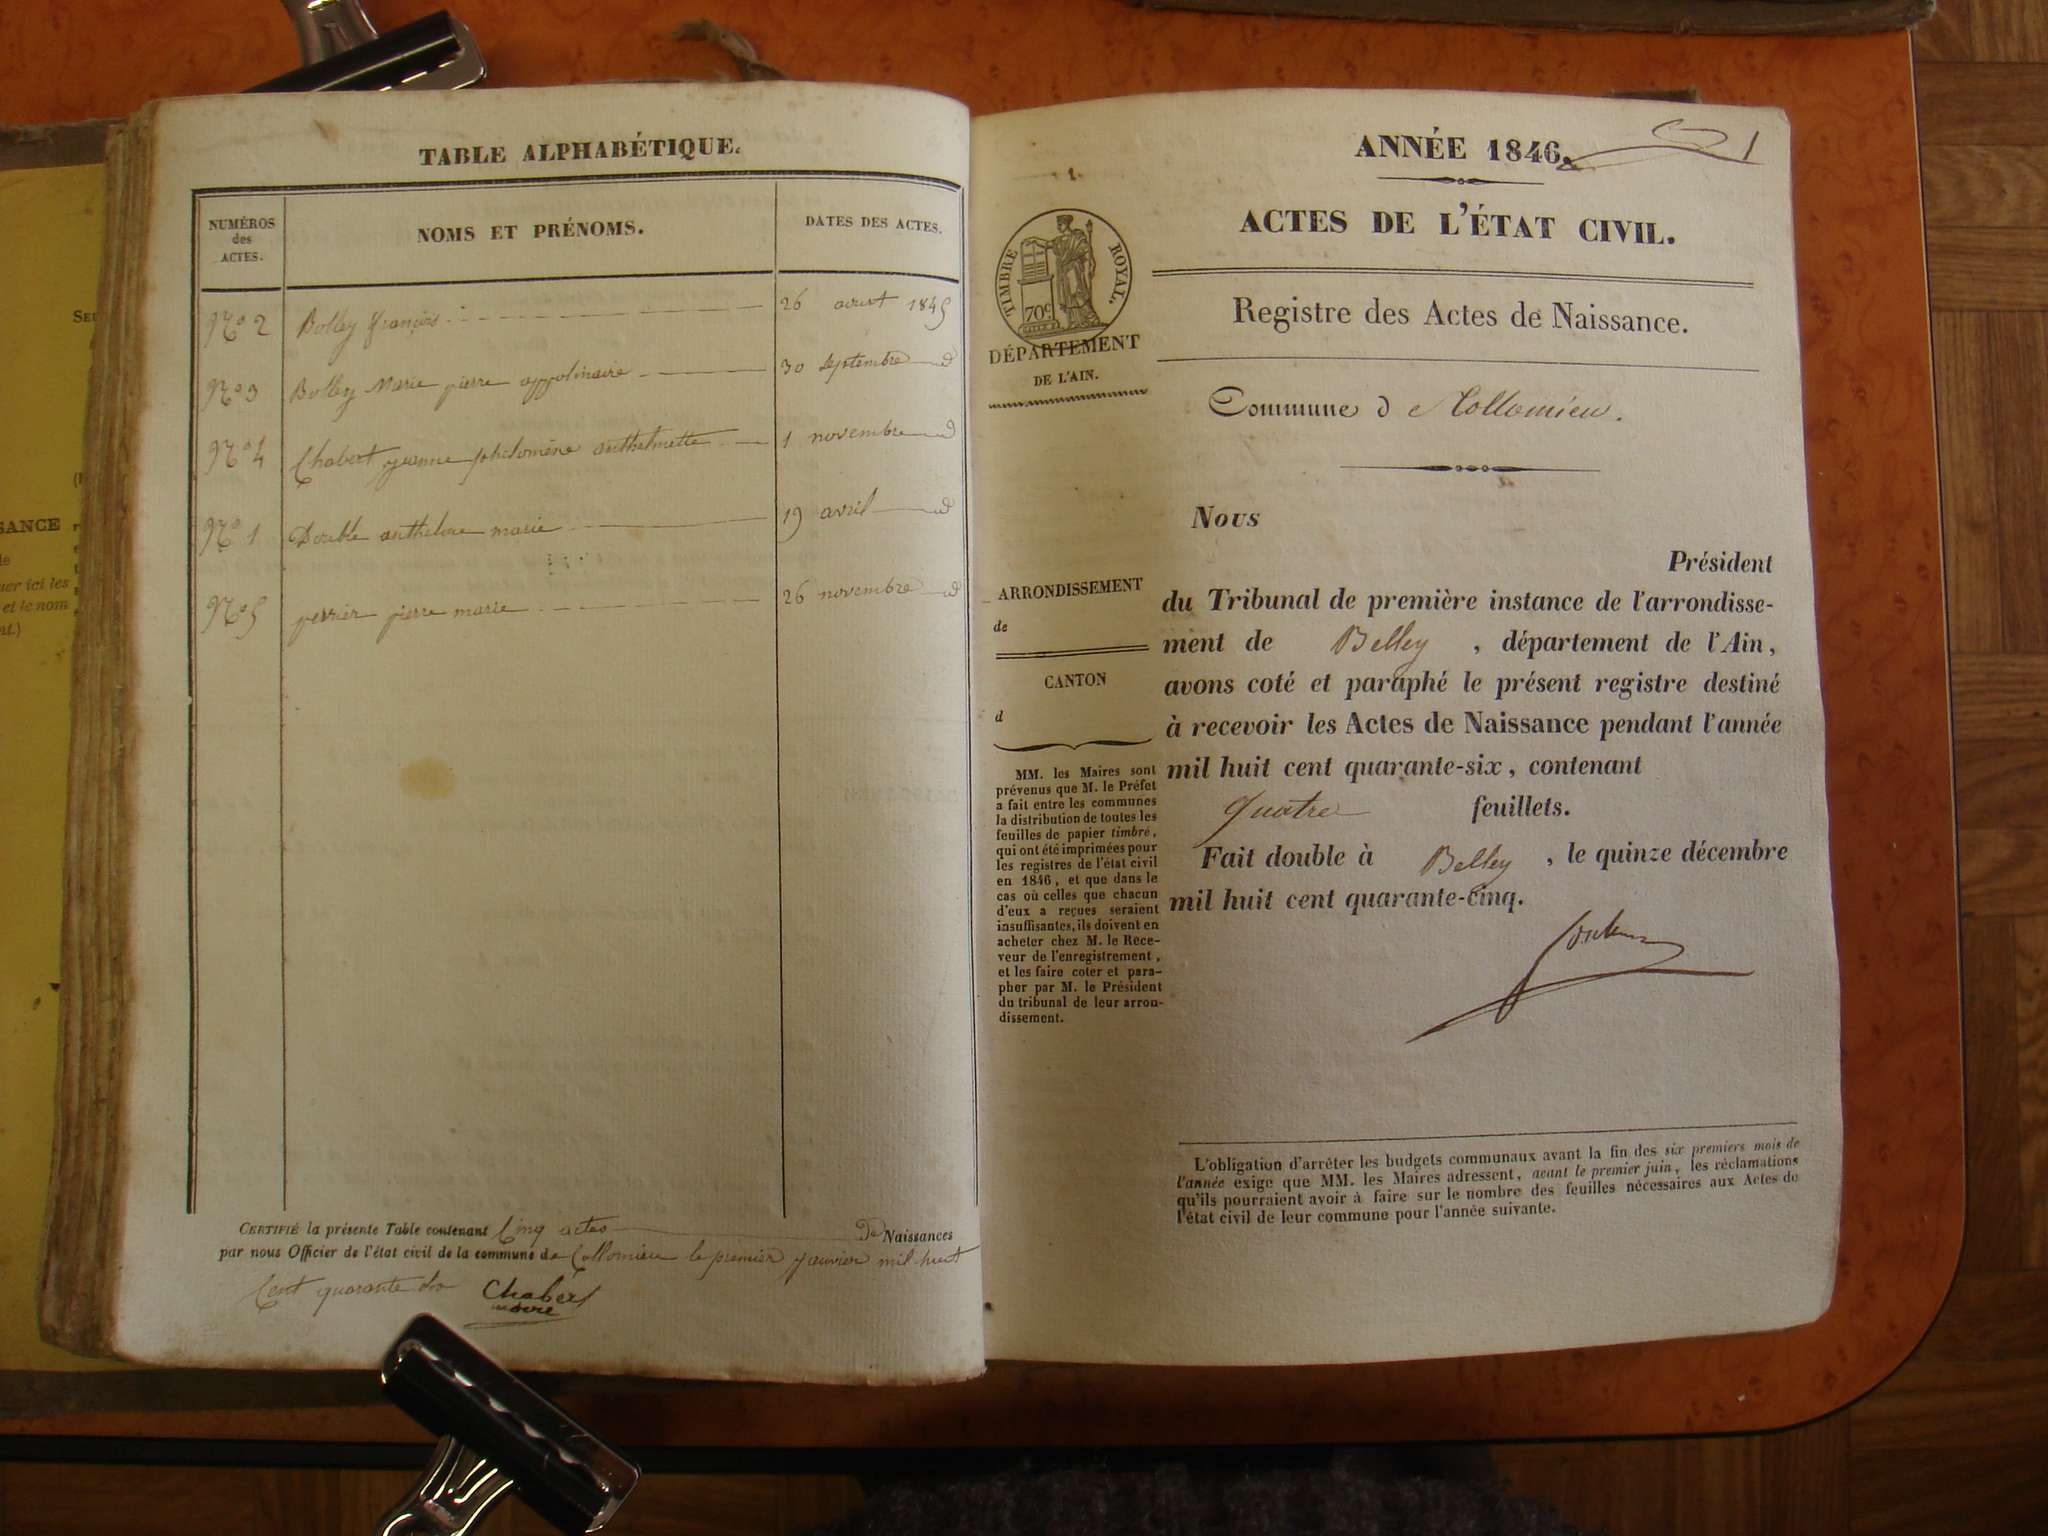 TABLE ALPHABÉTIQUE.
NUMÉROS
des
ACTES.
NOMS ET PRÉNOMS.
DATES DES ACTES.
N.o 2 Bolley françois 26 avust 1845
N.o 3 Bolley Marie pierre appolinaire 30 septembre d
N.o 4 Chabert jeanne philomène anthelmette 1 novembre d
N.o 1 Double anthelme marie 19 avril d
N.o 5 perrier pierre marie 26 novembre d
CERTIFIÉ la présente Table contenant Cinq actes De Naissances
par nous Officier de l'état civil de la commune de Collomieu le premier janvier mil huit
Cent quarante six Chabert
maire
SANCE
uer ici les
et le nom
nt.)
ANNÉE 1846. 1
ACTES DE L'ÉTAT CIVIL.
TIMBRE ROYAL.
70c
DÉPARTEMENT
DE L'AIN.
Registre des Actes de Naissance.
Commune de Collomieu.
Nous
Président
du Tribunal de première instance de l'arrondisse-
ment de Belley, département de l'Ain,
avons coté et paraphé le présent registre destiné
à recevoir les Actes de Naissance pendant l'année
mil huit cent quarante-six, contenant
quatre feuillets.
Fait double à Belley, le quinze décembre
mil huit cent quarante-cinq.
ARRONDISSEMENT
de
CANTON
d
MM. les Maires sont
prévenus que M. le Préfet
a fait entre les communes
la distribution de toutes les
feuilles de papier timbré,
qui ont été imprimées pour
les registres de l'état civil
en 1846, et que dans le
cas où celles que chacun
d'eux a reçues seraient
insuffisantes, ils doivent en
acheter chez M. le Rece-
veur de l'enregistrement,
et les faire coter et para-
pher par M. le Président
du tribunal de leur arron-
dissement.
L'obligation d'arrêter les budgets communaux avant la fin des six premiers mois de
l'année exige que MM. les Maires adressent, avant le premier juin, les réclamations
qu'ils pourraient avoir à faire sur le nombre des feuilles nécessaires aux Actes de
l'état civil de leur commune pour l'année suivante.